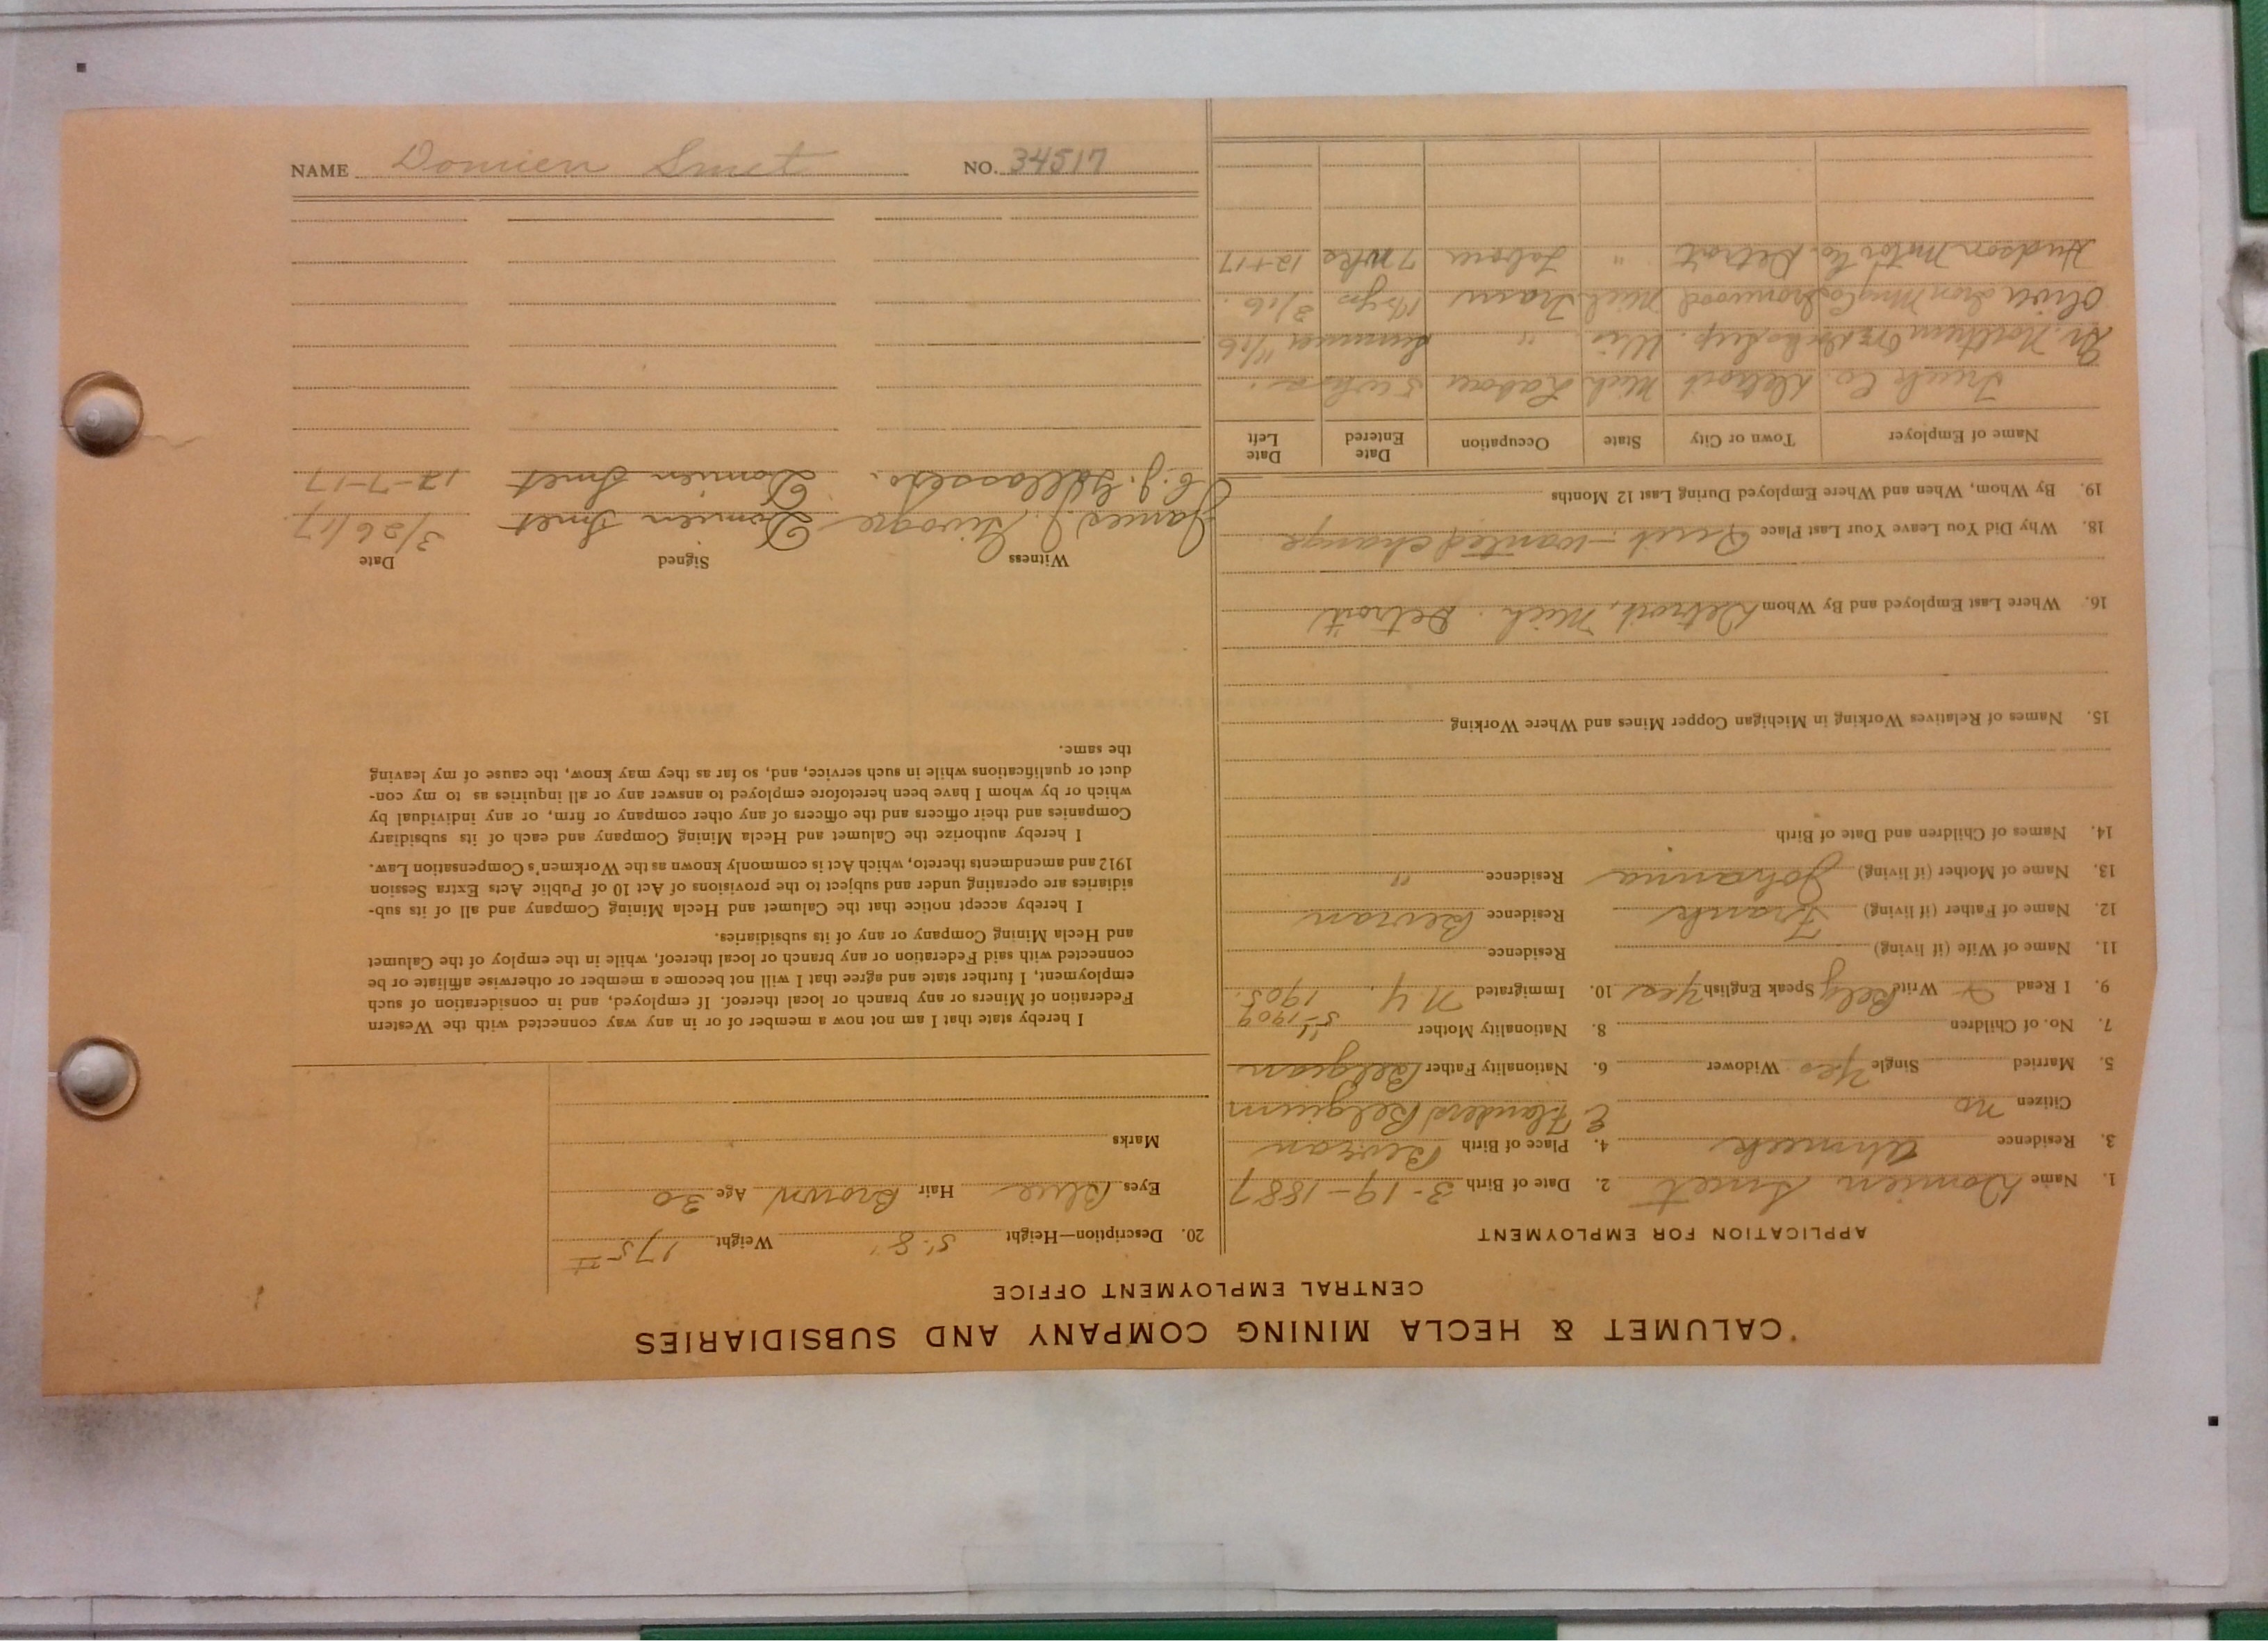 NAME Domien Smet NO. 34517
CALUMET & HECLA MINING COMPANY AND SUBSIDIARIES
CENTRAL EMPLOYMENT OFFICE
APPLICATION FOR EMPLOYMENT
1. Name Domien Smet 2. Date of Birth 3-19-1887
3. Residence Ahmeek 4. Place of Birth
Citizen no E. Flanders Belgium
5. Married Single Yes Widower 6. Nationality Father Belgian
7. No. of Children 8. Nationality Mother "
5-1909
9. I Read Write Belg Speak English yes 10. Immigrated N.Y. 1905.
11. Name of Wife (if living) Residence
12. Name of Father (if living) Frank Residence
13. Name of Mother (if living) Johanna Residence "
14. Names of Children and Date of Birth
15. Names of Relatives Working in Michigan Copper Mines and Where Working
16. Where Last Employed and By Whom Detroit, Mich. Detroit
18. Why Did You Leave Your Last Place Quit - wanted change
19. By Whom, When and Where Employed During Last 12 Months
Name of Employer Town or City State Occupation Date Entered Date Left
Truck Co. Detroit Mich Labor
Gt. Northern Ore Sup. Wis " Summer 11/16
Oliver Iron Mng Co Ironwood Mich Tram 1½ yrs 3/16
Hudson Motor Co. Detroit " Laborer 7 Wks 12-1-17
20. Description—Height 5' 8" Weight 175#
Eyes Blue Hair Brown Age 30
Marks
I hereby state that I am not now a member of or in any way connected with the Western
Federation of Miners or any branch or local thereof. If employed, and in consideration of such
employment, I further state and agree that I will not become a member or otherwise affiliate or be
connected with said Federation or any branch or local thereof, while in the employ of the Calumet
and Hecla Mining Company or any of its subsidiaries.
I hereby accept notice that the Calumet and Hecla Mining Company and all of its sub-
sidiaries are operating under and subject to the provisions of Act 10 of Public Acts Extra Session
1912 and amendments thereto, which Act is commonly known as the Workmen's Compensation Law.
I hereby authorize the Calumet and Hecla Mining Company and each of its subsidiary
Companies and their officers and the officers of any other company or firm, or any individual by
which or by whom I have been heretofore employed to answer any or all inquiries as to my con-
duct or qualifications while in such service, and, so far as they may know, the cause of my leaving
the same.
Witness Signed Date
James J. Domien Smet 3/26/17
Domien Smet 12-7-17